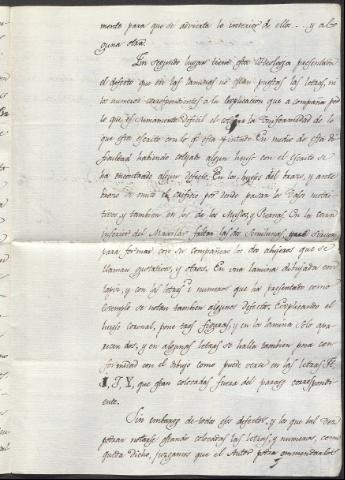 mento para que se advierta lo interior de ellos . . . y al
guna otra.
En segundo lugar tiene esta Osteologia presentada
el defecto que en las laminas no estan puestas las letras, ni
los numeros correspondientes a la explicacion que a compaña por
lo que es sumamente dificil el la conformidad de lo
que esta escrito con lo qe esta pintado. En medio de esta di
ficultad habiendo cotejado algun hueso con el escrito se
ha encontrado algun defecto. En los huesos del brazo, y ante
brazo se omite el orificio por donde pasan los vasos nutri
tivos y tambien en los de los Muslos, y Piernas. En la cara
inferior del Maxilar faltan las dos que sirven
para formar con su compañero los dos abujeros que se
llaman gustativos, y otros. En una lamina dibujada con
lapiz, y con las letras i numeros que ha presentado como
exemplo se notan tambien algunos defectos. Explicando el
hueso coronal, pone tres figuras, y en la lamina solo apa
recen dos, y en algunas letras se halla tambien poca con
formidad con el dibujo como puede verse en las letras
I, T, Y, que estan colocadas fuera del parage correspondi
ente.
Sin embargo de todos estos defectos, y los que tal vez
podran notarse estando colocadas las letras, y numeros, como
queda dicho, juzgamos que el Autor podra enmendarlos